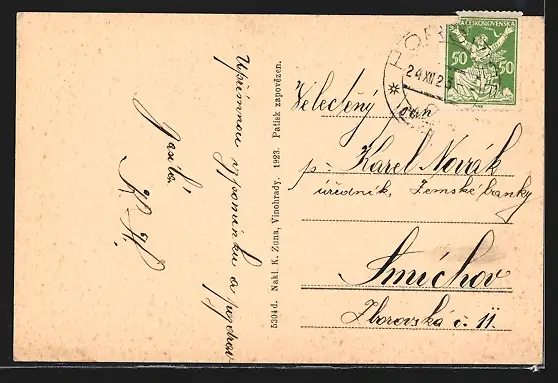 Upřímnou vzpomínku a pozdrav
zasílá
K. H.
5304d. Nakl. K. Zuna, Vinohrady. 1923. Patisk zapovězen.
ČESKOSLOVENSKÁ
50 50
24 XII 25
Velectěný pan
p. Karel Novák
úředník, Zemské banky
Smíchov
Zborovská č. 11.